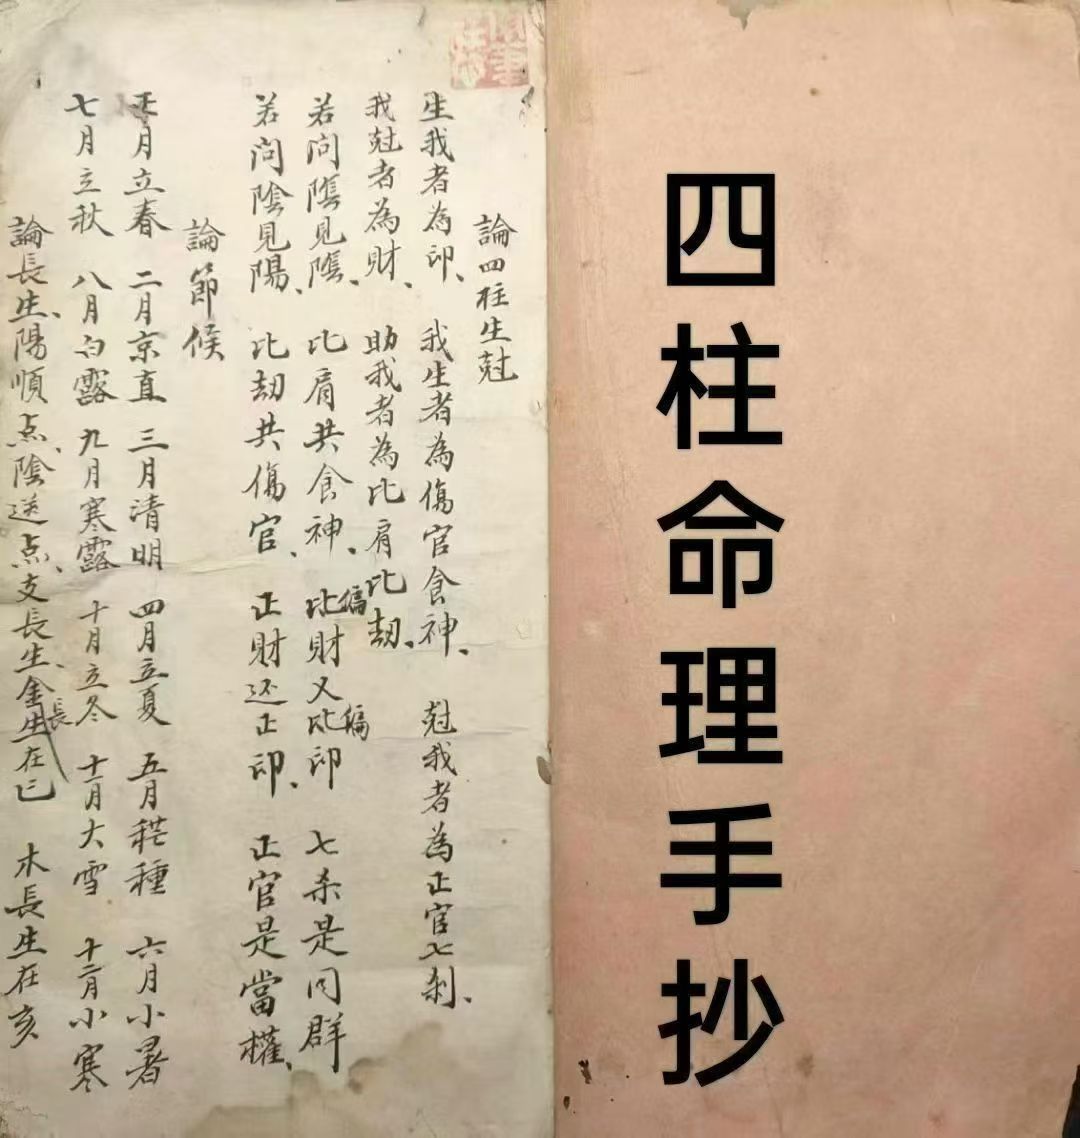 四柱命理手抄
論四柱生尅
生我者為印、 我生者為傷官食神、 尅我者為正官七刹、
我尅者為財、 助我者為比肩比刼、
若问陰見陰、 比肩共食神、 偏財又偏印 七杀是同群
若问陰見陽、 比刼共傷官、 正財还正印、 正官是當權、
論節候
正月立春 二月京直 三月清明 四月立夏 五月芒種 六月小暑
七月立秋 八月白露 九月寒露 十月立冬 十一月大雪 十二月小寒
論長生、陽順点、陰送点、支長生、金長生在巳 木長生在亥